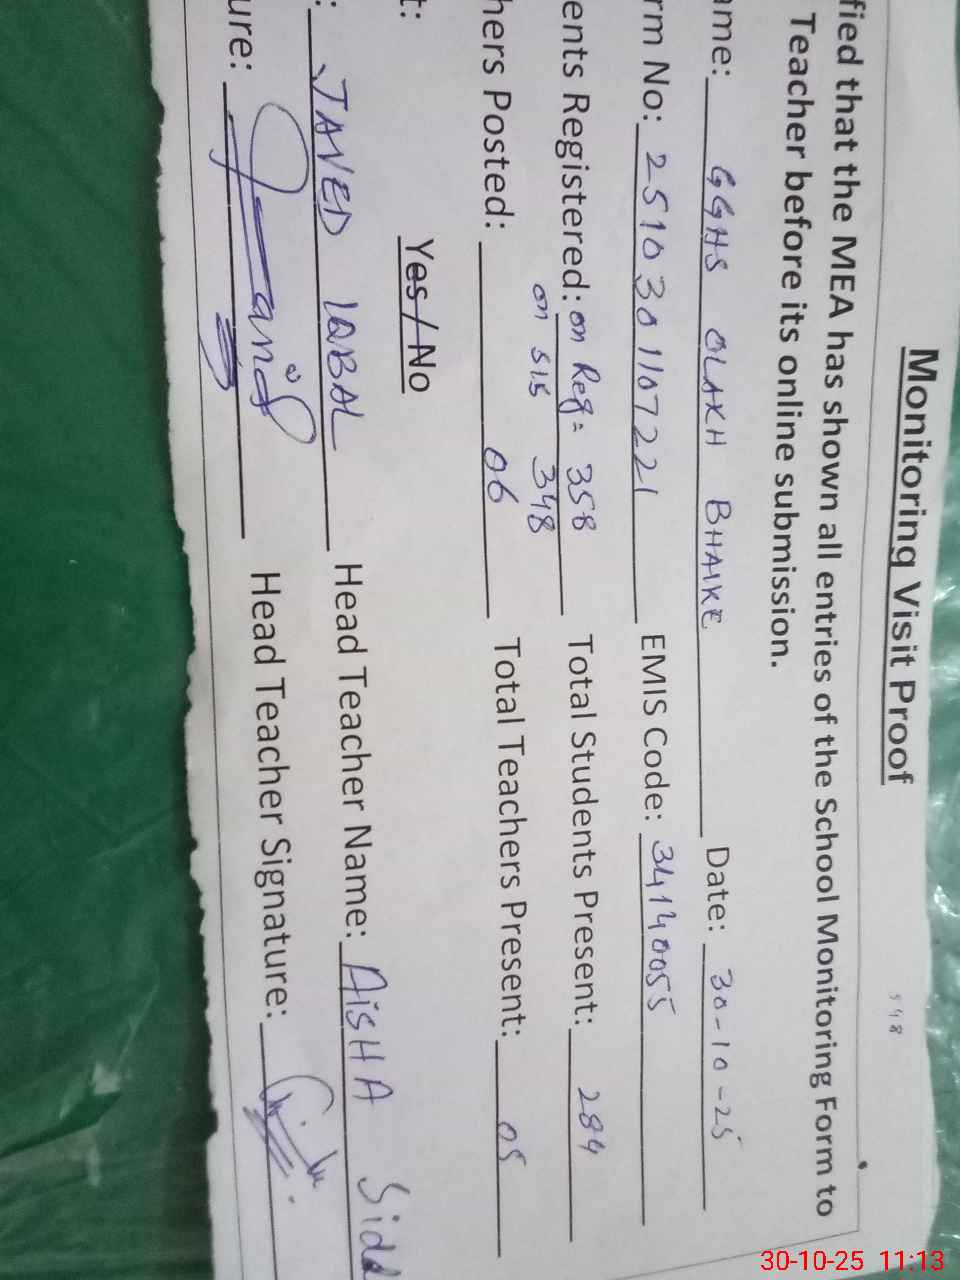 Monitoring Visit Proof
548
fied that the MEA has shown all entries of the School Monitoring Form to
Teacher before its online submission.
ame: GGHS OLAKH BHAIKE Date: 30-10-25
rm No: 2510301107221 EMIS Code: 34140055
ents Registered: on Reg = 358 Total Students Present: 284
on SIS 348
hers Posted: 06 Total Teachers Present: 05
t: Yes / No
: JAVED IQBAL Head Teacher Name: AISHA Sidd
ure: Head Teacher Signature:
30-10-25 11:13